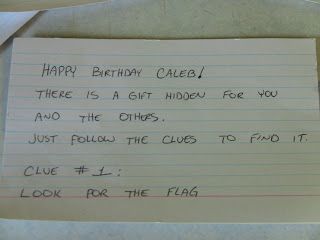 HAPPY BIRTHDAY CALEB!
THERE IS A GIFT HIDDEN FOR YOU
AND THE OTHERS.
JUST FOLLOW THE CLUES TO FIND IT.
CLUE #1:
LOOK FOR THE FLAG